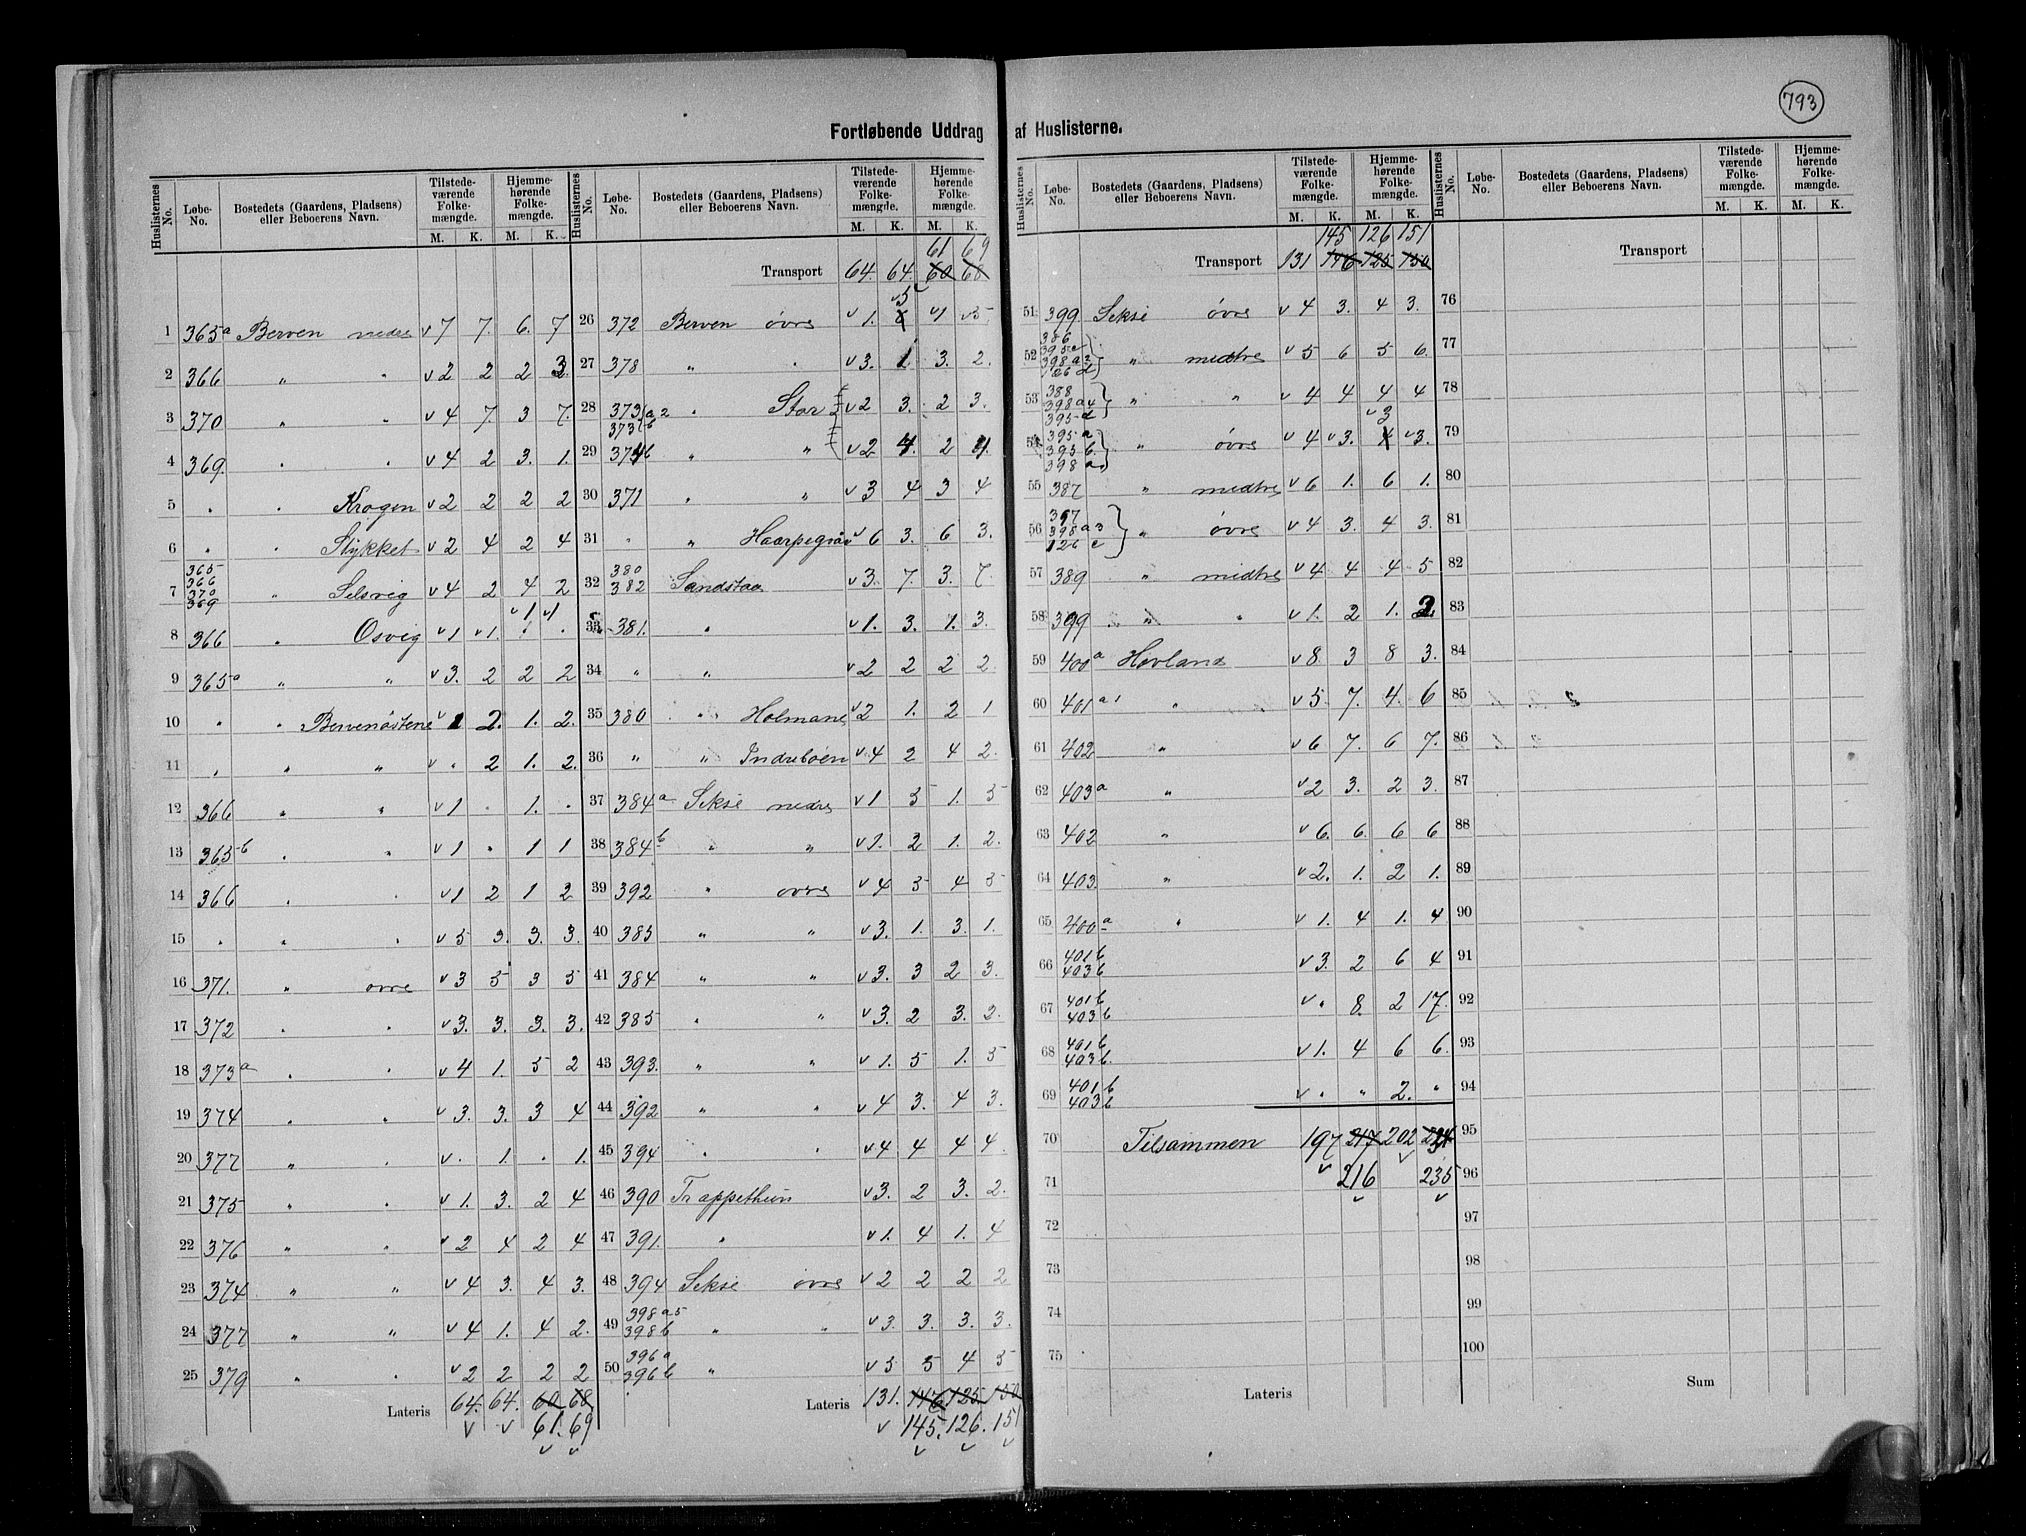 793
Fortløbende Uddrag af Huslisterne.
Huslisternes No. Løbe-No. Bostedets (Gaardens, Pladsens) eller Beboerens Navn. Tilstedeværende Folkemængde. M. K. Hjemmehørende Folkemængde. M. K.
1 365a Berven nedre v 7 7. 6. 7
2 366 " " v 2 2 2 3
3 370 " " v 4 7. 3 7.
4 369. " " v 4 2 3. 1.
5 " " Krogen v 2 2 2 2
6 " " Stykket v 2 4 2 4
7 365 366 370 369 " Selsvig v 4 2 4 2
8 366 " Osvig v 1 v 1. v 1 v 1
9 365a " " v 3. 2 2 2
10 " " Bervenøstene v 1 2. 1. 2.
11 " " " v " 2 1. 2.
12 366 " " v 1 " 1. "
13 365b " " v 1 " 1 1
14 366 " " v 1 2 1 2
15 " " " v 5 3. 3. 3.
16 371. " øvre v 3 5 3 5
17 372 " " v 3. 3. 3. 3.
18 373a " " v 4 1. 5 2
19 374 " " v 3. 3. 3 4
20 377 " " v " 1. " 1.
21 375 " " v 1. 3. 2 4
22 376 " " v 2 4 2 4
23 374 " " v 4 3. 4 3.
24 377 " " v 4 1. 4 2.
25 379 " " v 2 2 2 2
Lateris 64. 64. 60 68
61. 69
Huslisternes No. Løbe-No. Bostedets (Gaardens, Pladsens) eller Beboerens Navn. Tilstedeværende Folkemængde. M. K. Hjemmehørende Folkemængde. M. K.
61 69
Transport 64. 64. 60 68
26 372 Berven øvre v 1. v 5 v 1 v 5.
27 378 " " v 3. 1. 3. 2.
28 373a2 373b " Stor v 2 3. 2 3.
29 374b " " v 2 4. 2 4.
30 371 " " v 3 4 3 4
31 " " Haarpegrav v 6 3. 6 3.
32 380 382 Sandstaa v 3. 7. 3. 7.
33 381. " v 1. 3. 1. 3.
34 " " v 2 2 2 2
35 380 " Holmane v 2 1. 2 1
36 " " Indrebøen v 4 2 4 2.
37 384a Sekse nedre v 1 5 1. 5
38 384b " " v 1. 2 1. 2.
39 392 " øvre v 4 5 4 5
40 385 " " v 3. 1. 3. 1.
41 384 " " v 3. 3 2 3.
42 385 " " v 3. 2 3. 2.
43 393. " " v 1. 5 1. 5
44 392 " " v 4 3. 4 3.
45 394 " " v 4 4 4 4.
46 390 Trappethun v 3. 2 3. 2.
47 391. " v 1. 4 1. 4
48 394 Sekse øvre v 2 2 2 2
49 398a5 398b " " v 3. 3. 3. 3.
50 396a 396b " v 5 5 4 5
Lateris 131. 146 125. 150
145. 126. 151
Huslisternes No. Løbe-No. Bostedets (Gaardens, Pladsens) eller Beboerens Navn. Tilstedeværende Folkemængde. M. K. Hjemmehørende Folkemængde. M. K.
145 126 151
Transport 131 146 125 150
51 399 Sekse øvre v 4 3. 4 3.
52 386 395c 398a2 126 d " midtre v 5 6 5 6.
53 388 398a4 395d " " v 4 4 4 4
54 395a 395b. 398a1 " øvre v 4 v 3. v 3 v 3.
55 387 " midtre v 6 1. 6 1.
56 397 398a3 126 c " øvre v 4 3. 4 3.
57 389 " midtre v 4 4 4 5
58 399 " " v 1. 2 1. 2.
59 400a Hovland v 8. 3 8 3.
60 401a1 " v 5. 7. 4. 6
61 402 " v 6 7. 6 7.
62 403a " v 2 3. 2 3.
63 402 " v 6. 6. 6 6
64 403. " v 2. 1. 2 1.
65 400a " v 1. 4 1. 4
66 401b 403b v 3. 2 6 4
67 401b 403b v " 8. 2 17.
68 401b 403b. v 1. 4 6 6.
69 401b 403b v " " 2. "
70 Tilsammen 197 217 202 234
71 216 235
72
73
74
75
Lateris
Huslisternes No. Løbe-No. Bostedets (Gaardens, Pladsens) eller Beboerens Navn. Tilstedeværende Folkemængde. M. K. Hjemmehørende Folkemængde. M. K.
Transport
76
77
78
79
80
81
82
83
84
85
86
87
88
89
90
91
92
93
94
95
96
97
98
99
100
Sum